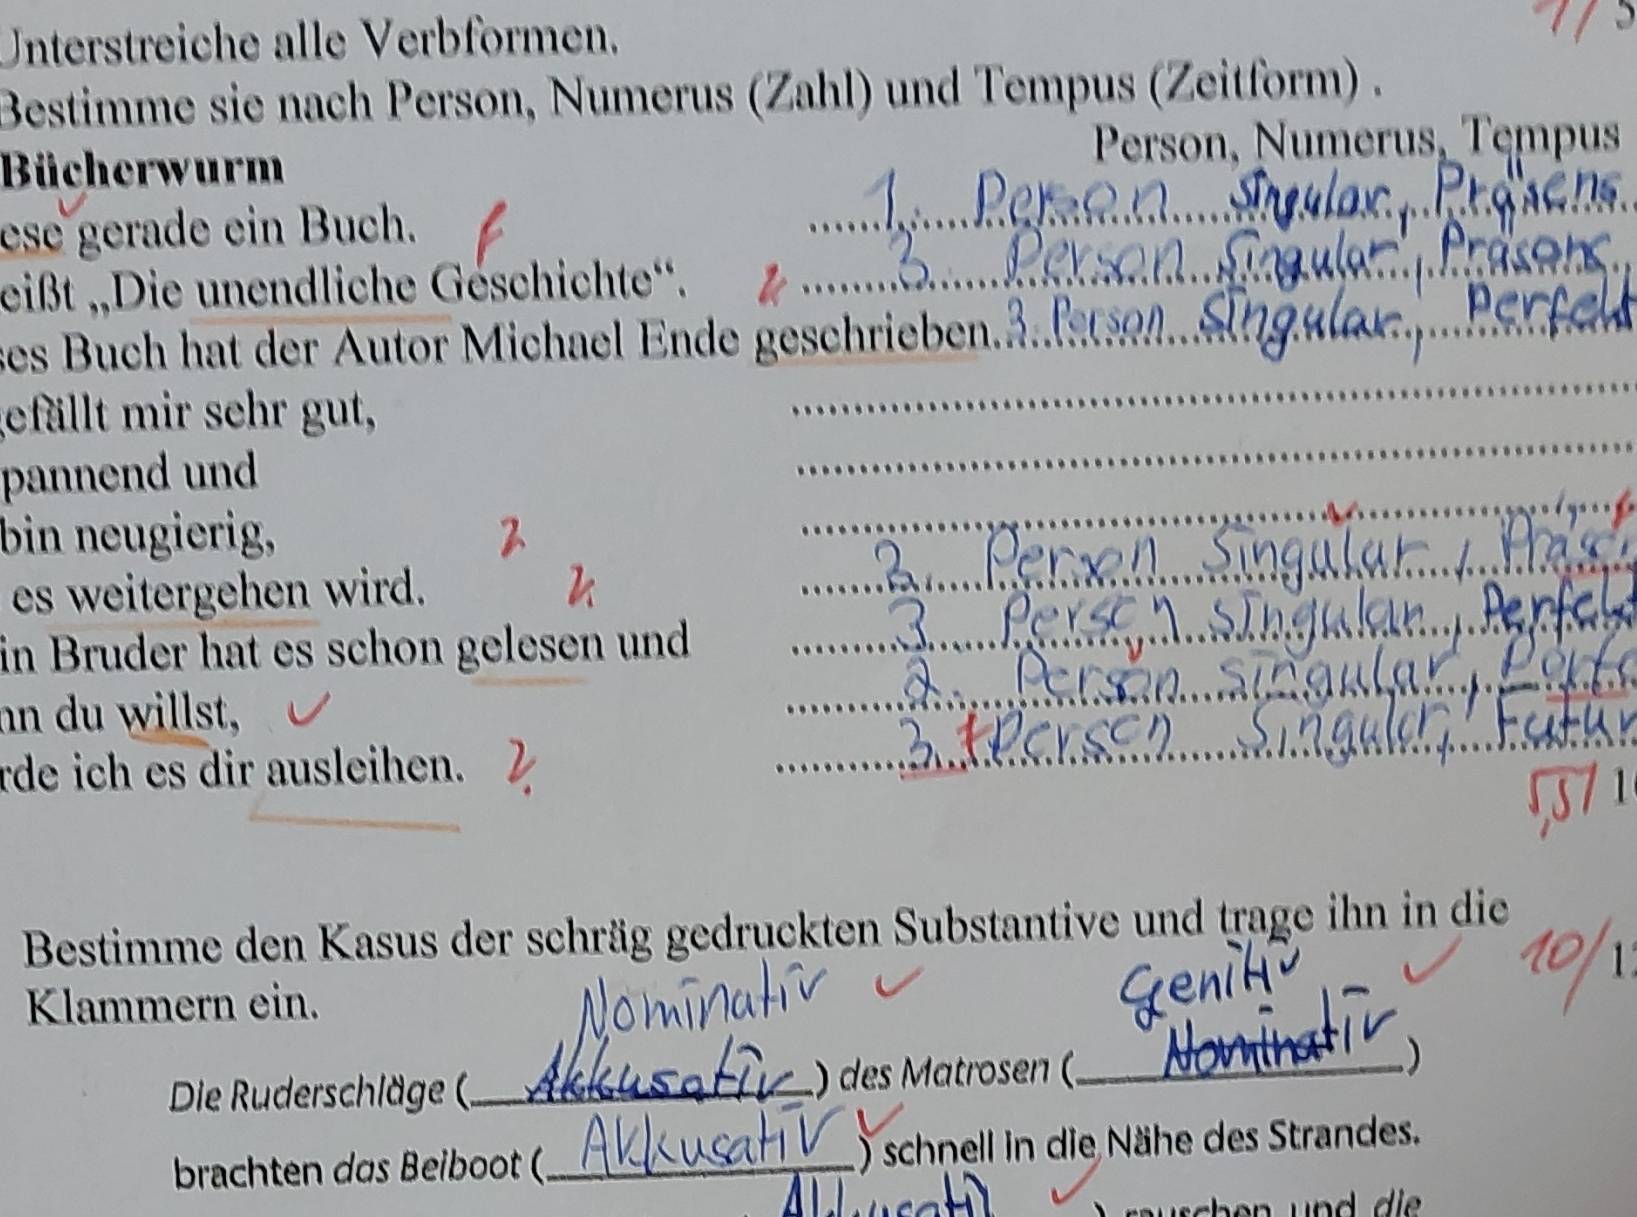 Unterstreiche alle Verbformen. 1/5
Bestimme sie nach Person, Numerus (Zahl) und Tempus (Zeitform) .
Person, Numerus, Tempus
Bücherwurm
ese gerade ein Buch. f 1. Person Singular, Präsens
eißt „Die unendliche Geschichte“. 3. Person Singular, Präsens
ses Buch hat der Autor Michael Ende geschrieben. 3. Person Singular, Perfekt
gefällt mir sehr gut,
pannend und
bin neugierig,
es weitergehen wird. 2. Person Singular, Präse
in Bruder hat es schon gelesen und 3. Person Singular, Perfekt
nn du willst, 2. Person Singular, Perfe
rde ich es dir ausleihen. 3. Person Singular, Futur
5,5/ 1
Bestimme den Kasus der schräg gedruckten Substantive und trage ihn in die
Klammern ein. 10/1
Nominativ Genitiv
Die Ruderschläge (Akkusativ) des Matrosen (Nominativ)
brachten das Beiboot (Akkusativ) schnell in die Nähe des Strandes.
Akkusativ ) rauschen und die